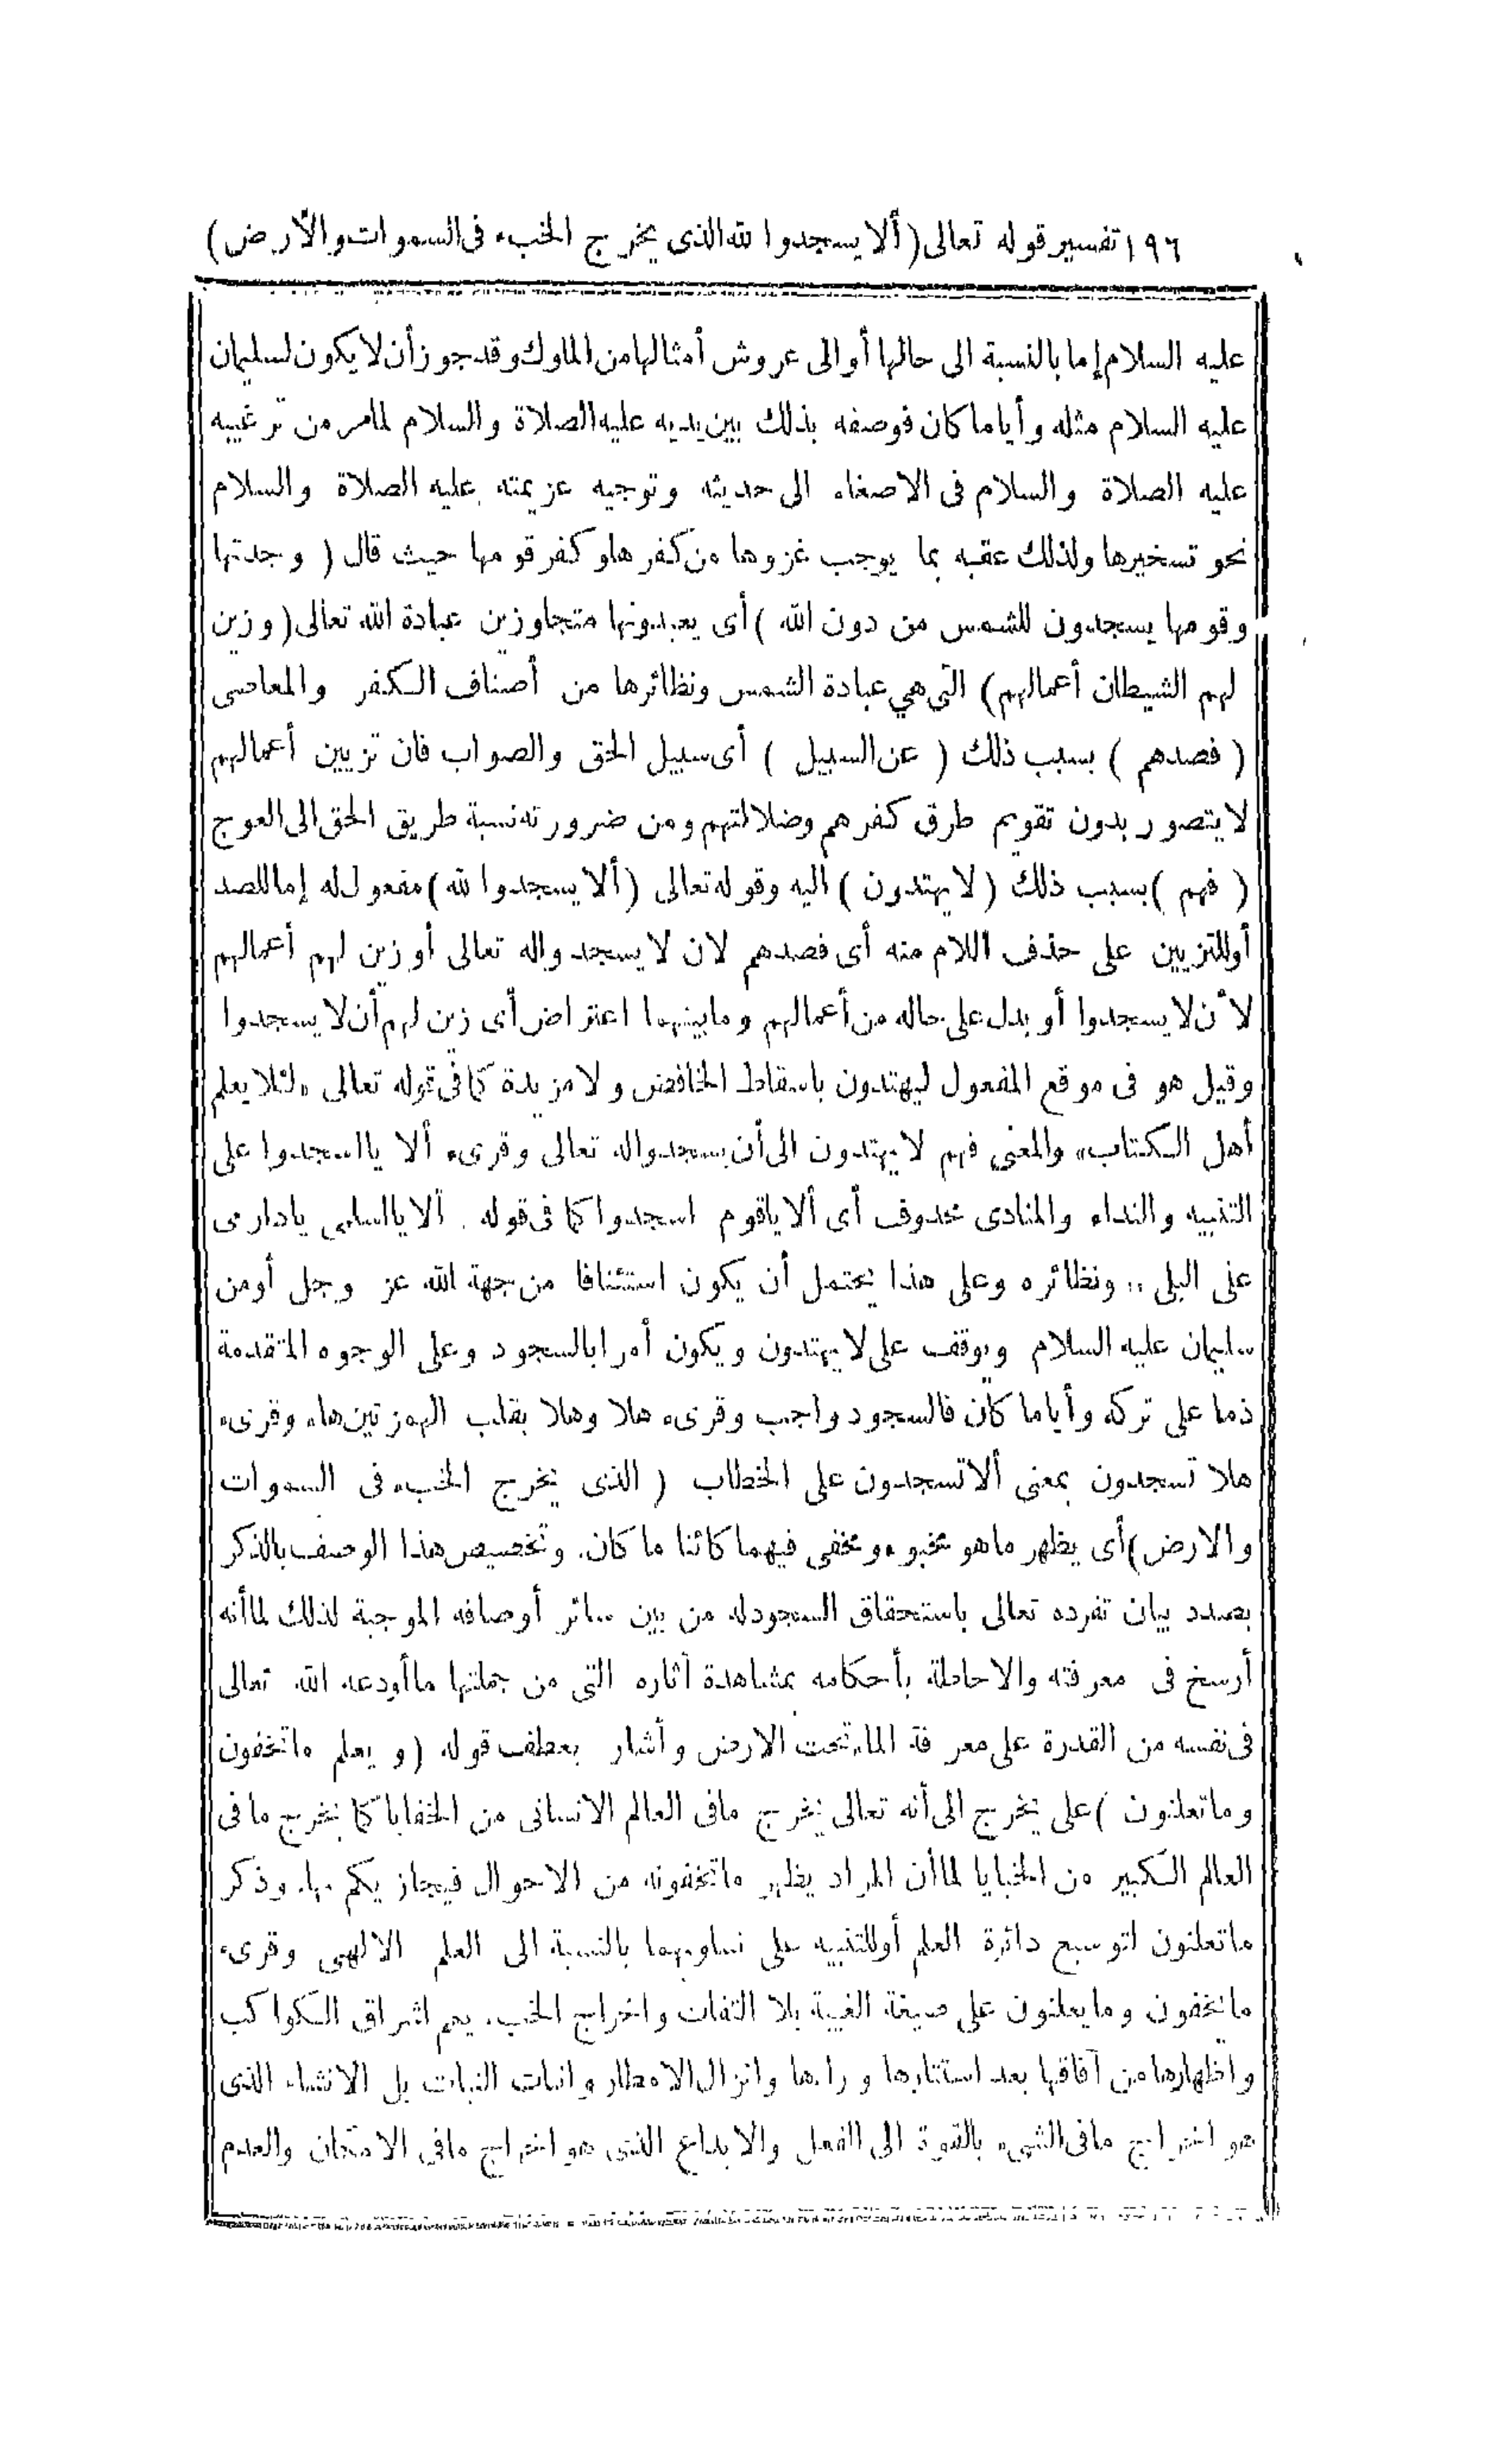 ١٩٦ تفسير قوله تعالى (ألا يسجدوا لله الذى يخرج الخبء فى السموات والأرض)
عليه السلام إما بالنسبة الى حالها أو الى عروش أمثالها من الملوك وقد جوز أن لا يكون لسليمان
عليه السلام مثله وأياما كان فوصفه بذلك بين يديه عليه الصلاة والسلام لمامر من ترغيبه
عليه الصلاة والسلام فى الاصغاء الى حديثه وتوجيه عزيمته عليه الصلاة والسلام
نحو تسخيرها ولذلك عقبه بما يوجب غزوها من كفرها وكفر قومها حيث قال ( وجدتها
وقومها يسجدون للشمس من دون الله ) أى يعبدونها متجاوزين عبادة الله تعالى (وزين
لهم الشيطان أعمالهم) التى هى عبادة الشمس ونظائرها من أصناف الكفر والمعاصى
( فصدهم ) بسبب ذلك ( عن السبيل ) أى سبيل الحق والصواب فان تزيين أعمالهم
لا يتصور بدون تقويم طرق كفرهم وضلالتهم ومن ضرورته نسبة طريق الحق الى العوج
( فهم ) بسبب ذلك (لا يهتدون ) اليه وقوله تعالى (ألا يسجدوا لله) مفعول له إما للصد
أوللتزيين على حذف اللام منه أى فصدهم لان لا يسجدوا له تعالى أو زين لهم أعمالهم
لأن لا يسجدوا أو بدل على حاله من أعمالهم وما بينهما اعتراض أى زين لهم أن لا يسجدوا
وقيل هو فى موقع المفعول ليهتدون باسقاط الخافض ولا مزيدة كما فى قوله تعالى «لئلا يعلم
أهل الكتاب» والمعنى فهم لا يهتدون الى أن يسجدوا له تعالى وقرىء ألا يا اسجدوا على
التنبيه والنداء والمنادى محذوف أى ألا ياقوم اسجدوا كما فى قوله . ألا يا اسلمى يا دار مى
على البلى .. ونظائره وعلى هذا يحتمل أن يكون استئنافا من جهة الله عز وجل أو من
سليمان عليه السلام ويوقف على لا يهتدون ويكون أمرا بالسجود وعلى الوجوه المتقدمة
ذما على تركه وأياما كان فالسجود واجب وقرىء هلا وهلا بقلب الهمزتين هاء وقرىء
هلا تسجدون بمعنى ألا تسجدون على الخطاب ( الذى يخرج الخبء فى السموات
والارض) أى يظهر ما هو مخبوء ومخفى فيهما كائنا ما كان. وتخصيص هذا الوصف بالذكر
بصدد بيان تفرده تعالى باستحقاق السجود له من بين سائر أوصافه الموجبة لذلك لما أنه
أرسخ فى معرفته والاحاطة بأحكامه بمشاهدة آثاره التى من جملتها ما أودعه الله تعالى
فى نفسه من القدرة على معرفة الماء تحت الارض وأشار بعطف قوله (ويعلم ما تخفون
وما تعلنون ) على يخرج الى أنه تعالى يخرج مافى العالم الانسانى من الخفايا كما يخرج ما فى
العالم الكبير من الخبايا لما أن المراد يظهر ما تخفونه من الاحوال فيجازيكم بها. وذكر
ما تعلنون لتوسيع دائرة العلم أوللتنبيه على تساويهما بالنسبة الى العلم الالهى وقرىء
ما يخفون وما يعلنون على صيغة الغيبة بلا التفات واخراج الخبء يعم اشراق الكواكب
واظهارها من آفاقها بعد استتارها وراءها وانزال الامطار وانبات النبات بل الانشاء الذى
هو اخراج مافى الشىء بالقوة الى الفعل والابداع الذى هو اخراج مافى الامكان والعدم